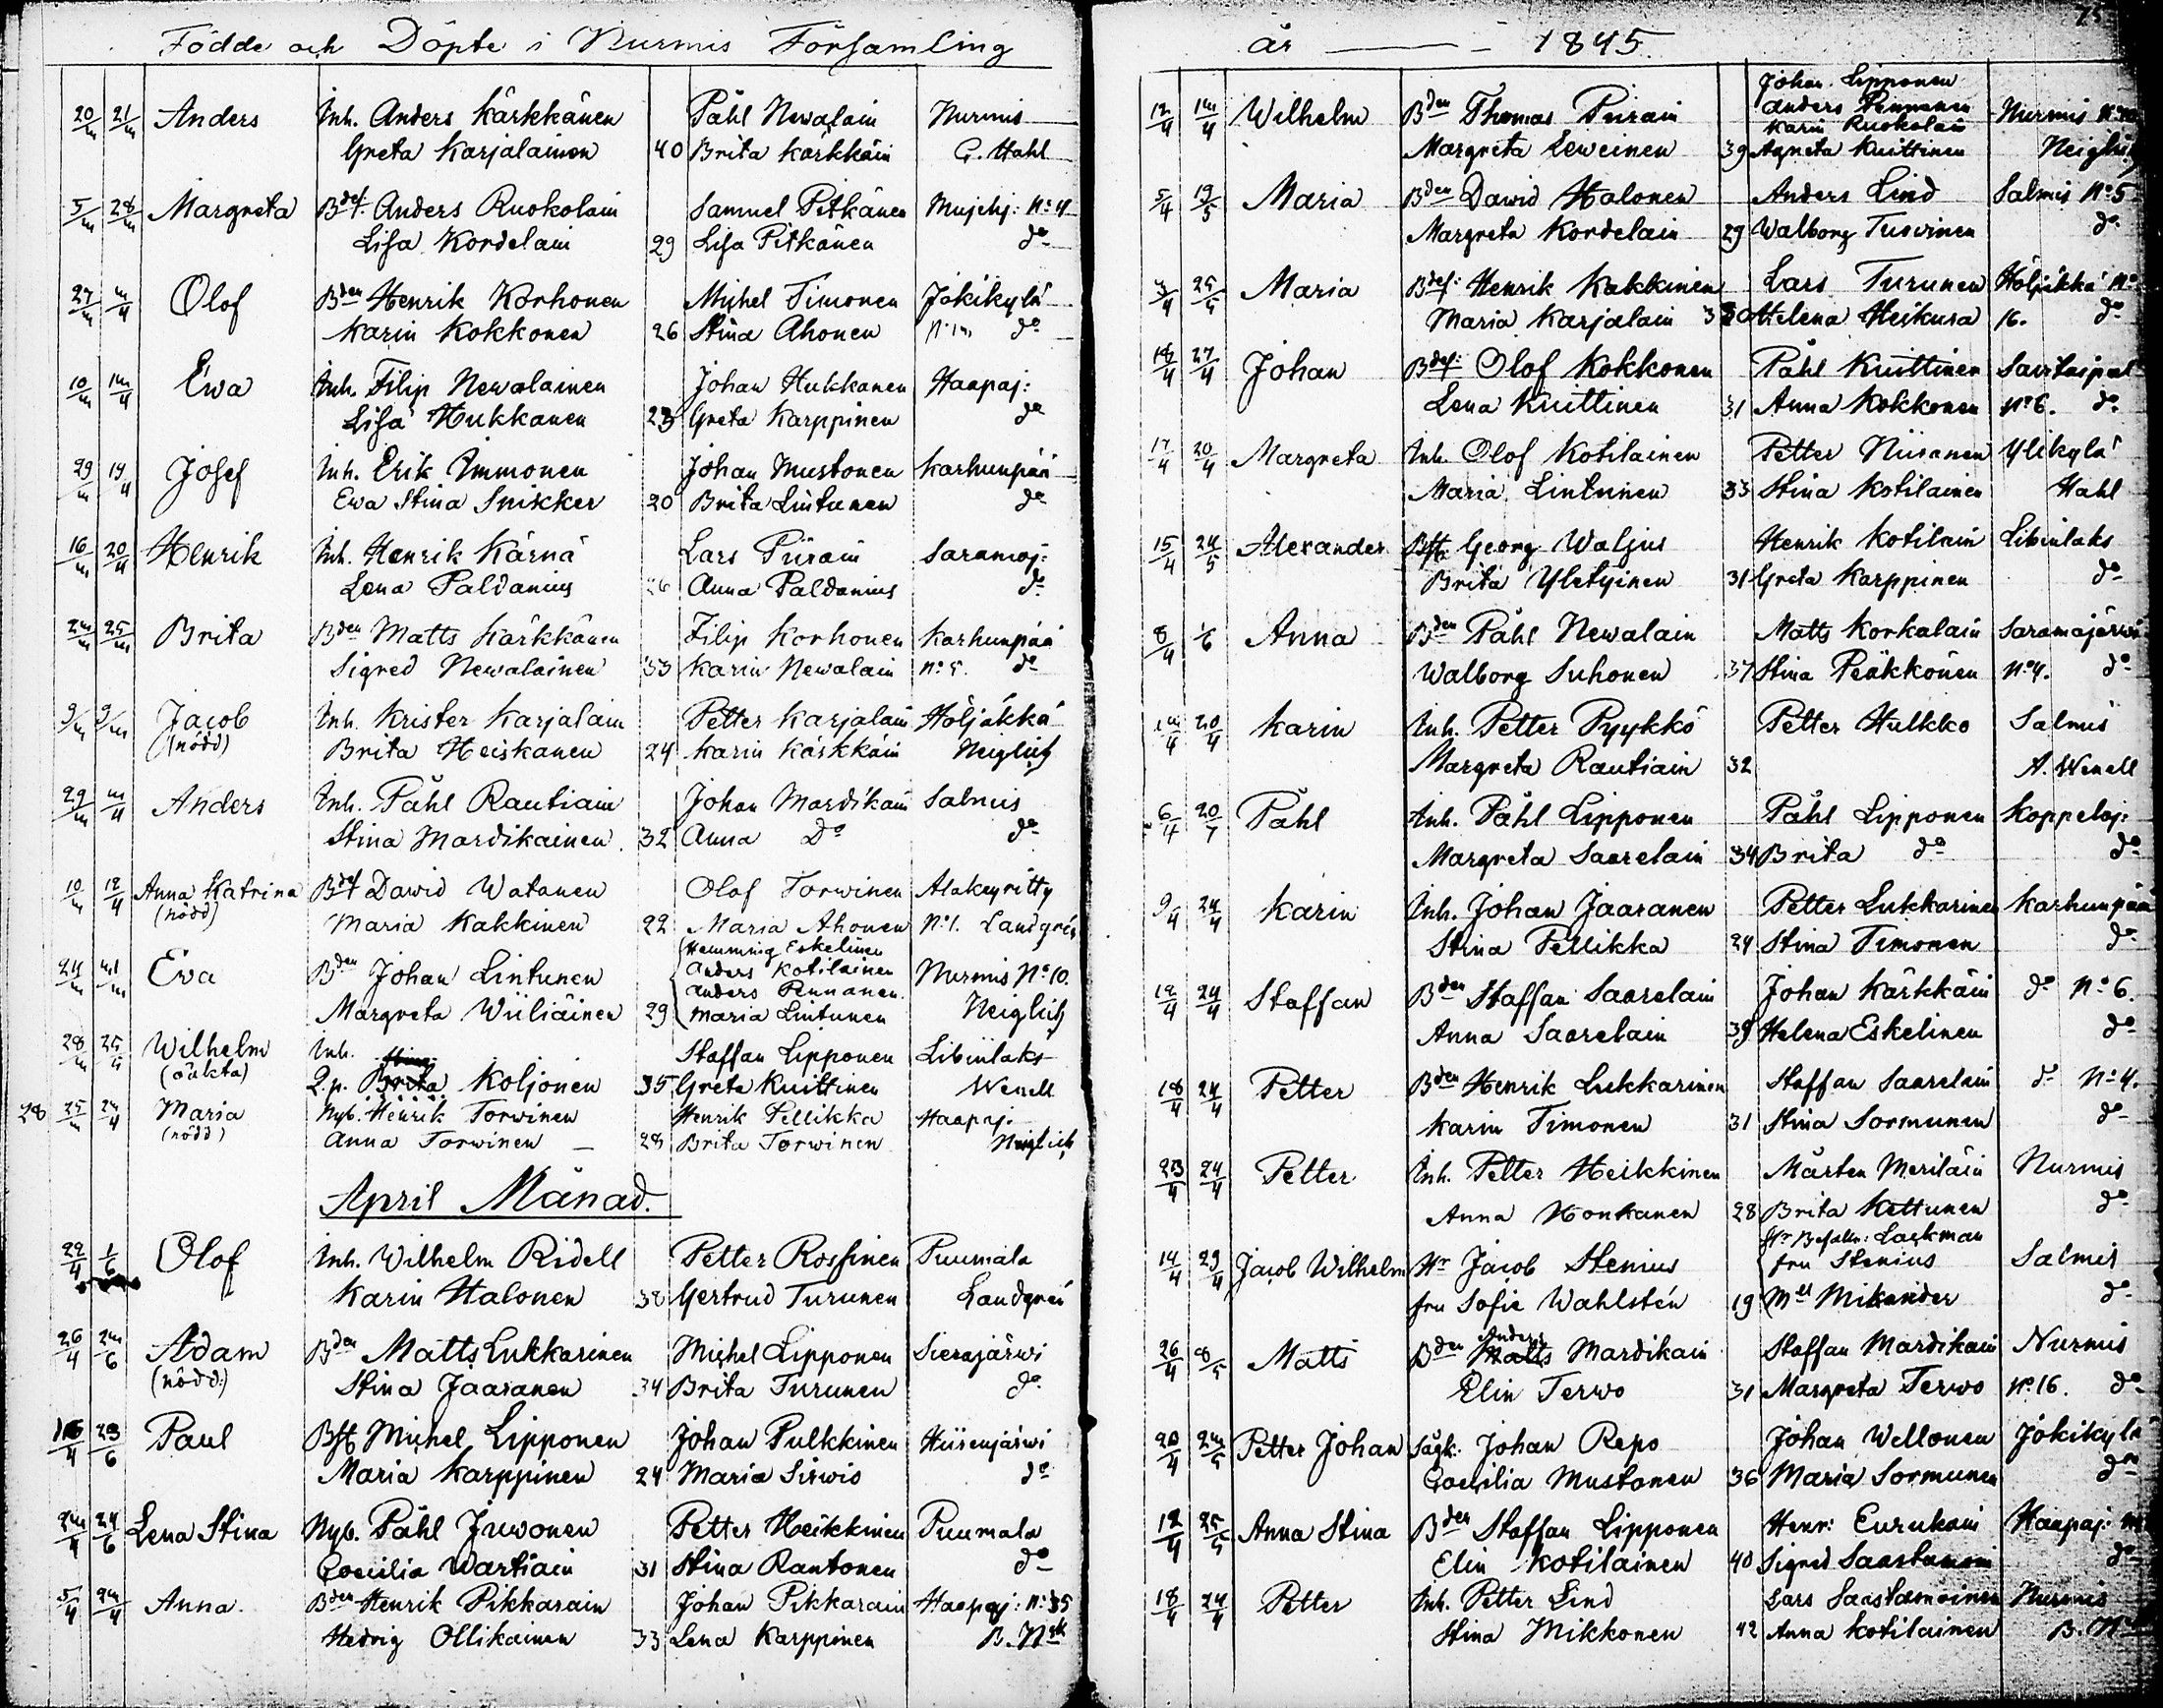 Födde och Döpte i Nurmis Församling
20/m 21/m Anders Inh. Anders Kärkkänen Påhl Newalain Nurmis
Greta Karjalainen 40 Brita Karkkäin G. Hahl
5/m 28/m Margreta Bdef. Anders Ruokolain Samuel Pitkänen Mujehj: No 4
Lisa Kordelain 29 Lisa Pitkänen do
27/m m/4 Olof Bden Henrik Korhonen Michel Timonen Jokikylä
Karin Kokkonen 26 Stina Ahonen do
10/m 1m/4 Ewa Inh. Filip Newalainen Johan Hukkanen Haapaj:
Lisa Hukkanen 23 Greta Karppinen do
29/m 19/4 Josef Inh. Erik Immonen Johan Mustonen Karhunpää
Ewa Stina Snikker 20 Brita Lintunen do
16/m 20/4 Henrik Inh. Henrik Kärnä Lars Piirain Saramoj:
Lena Paldanius 26 Anna Paldanius do
2m/m 25/m Brita Bden Matts Kärkkänen Filip Korhonen Karhunpää
Sigred Newalainen 33 Karin Newalain No 5. do
9/m 9/m Jacob Inh. Krister Karjalain Petter Karjalain Höljäkkä
(nödd) Brita Heiskanen 24 Karin Kärkkäin Neiglick
29/m m/4 Anders Inh. Påhl Rautiain Johan Mardikain Salmis
Stina Mardikainen 32 Anna Do do
10/m 12/4 Anna Katrina Bdef Dawid Watanen Olof Torwinen Alakeyritty
(nödd) Maria Kakkinen 22 Maria Ahonen No 1. Landgrén
Hemming Eskelinen
24/m m/m Ewa Bden Johan Lintunen Anders Kotilainen Nurmis No 10.
Anders Pennanen
Margreta Wiiliäinen 29 Maria Lintunen Neiglick
28/m 25/4 Wilhelm Inh. Staffan Lipponen Libiilaks
Stina
(oäkta) Q.p. Brita Koljonen 35 Greta Kuittinen Wenell
28 25/m 2m/4 Maria Nyb. Henrik Torwinen Henrik Pellikka Haapaj.
(nödd) Anna Torwinen 28 Brita Torwinen Neiglick
April Månad.
22/4 1/6 Olof Inh. Wilhelm Ridell Petter Rossinen Puumala
Karin Halonen 38 Gertrud Turunen Landgrén
26/4 2m/6 Adam Bden Matts Lukkarinen Michel Lipponen Sierajärwi
(nödd:) Stina Jaaranen 34 Brita Turunen do
16/4 23/6 Paul Bst Michel Lipponen Johan Pulkkinen Hiirenjärwi
Maria Karppinen 24 Maria Sirwio do
2m/4 24/6 Lena Stina Nyb. Påhl Juwonen Petter Heikkinen Puumala
Coecilia Wartiain 31 Stina Rantonen do
5/4 2m/4 Anna. Bden Henrik Pikkarain Johan Pikkarain Haapaj: No 35
Hedvig Ollikainen 33 Lena Karppinen
år 1845. 75
Johan Lipponen
12/4 1m/4 Wilhelm Bden Thomas Piirain Anders Pennanen Nurmis
Karin Ruokolain
Margreta Leweinen 39 Agneta Kuittinen Neiglick
5/4 19/5 Maria Bden Dawid Halonen Anders Lind Salmis No 5
Margreta Kordelain 29 Walborg Tuovinen do
3/4 25/5 Maria Bdef: Henrik Kakkinen Lars Turunen Höljäkkä No
Maria Karjalain 30 Helena Heikura 16. do
18/4 27/4 Johan Bdef: Olof Kokkonen Påhl Kuittinen
Lena Kuittinen 31 Anna Kokkonen No 6. do
17/4 20/4 Margreta Inh. Olof Kotilainen Petter Niiranen Ylikylä
Maria Lintunen 33 Stina Kotilainen Hahl
15/4 24/5 Alexander Bst. Georg Waljus Henrik Kotilain Libiilaks
Brita Yletyinen 31 Greta Karppinen do
8/4 1/6 Anna Bden Påhl Newalain Matts Korkalain Saramajärwi
Walborg Suhonen 37 Stina Peäkkönen No 4. do
1m/4 20/4 Karin Inh. Petter Pyykkö Petter Hulkko Salmis
Margreta Rautiain 32 A. Wenell
6/4 20/7 Påhl Inh. Påhl Lipponen Påhl Lipponen Koppeloj:
Margreta Saarelain 34 Brita do do
9/4 24/4 Karin Inh. Johan Jaaranen Petter Lukkarinen Karhunpää
Stina Pellikka 24 Stina Timonen do
12/4 24/4 Staffan Bden Staffan Saarelain Johan Kärkkäin do No 6.
Anna Saarelain 39 Helena Eskelinen do
18/4 24/4 Petter Bden Henrik Lukkarinen Staffan Saarelain do No 4.
Karin Timonen 31 Stina Sormunen do
23/4 24/4 Petter Inh. Petter Heikkinen Mårten Meriläin Nurmis
Anna Honkanen 28 Brita Kettunen do
Hr Befallm: Lackman
14/4 29/4 Jacob Wilhelm Hr Jacob Stenius fru Stenius Salmis
fru Sofie Wahlstén 19 Mll Mikander do
Anders
26/4 8/5 Matts Bden Matts Mardikain Staffan Mardikain Nurmis
Elin Terwo 31 Margreta Terwo No 16. do
20/4 2m/5 Petter Johan Sågk: Johan Repo Johan Wellonen Jokikylä
Coecilia Mustonen 36 Maria Sormunen do
12/4 25/5 Anna Stina Bden Staffan Lipponen Henr: Eurukain Haapaj:
Elin Kotilainen 40 Sigred Saastamoin do
18/4 24/4 Petter Inh. Petter Lind Lars Saastamoinen Nurmis
Stina Mikkonen 42 Anna Kotilainen